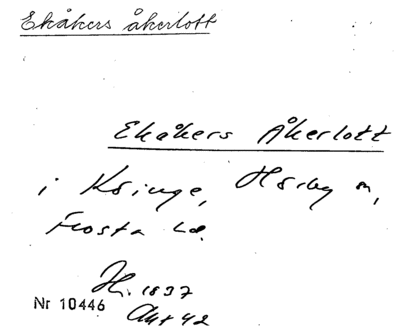 Ekåkers åkerlott
Ekåkers Åkerlott
i Kringe, Hörby sn,
Frosta hd.
H. 1837
Akt 42
Nr 10446